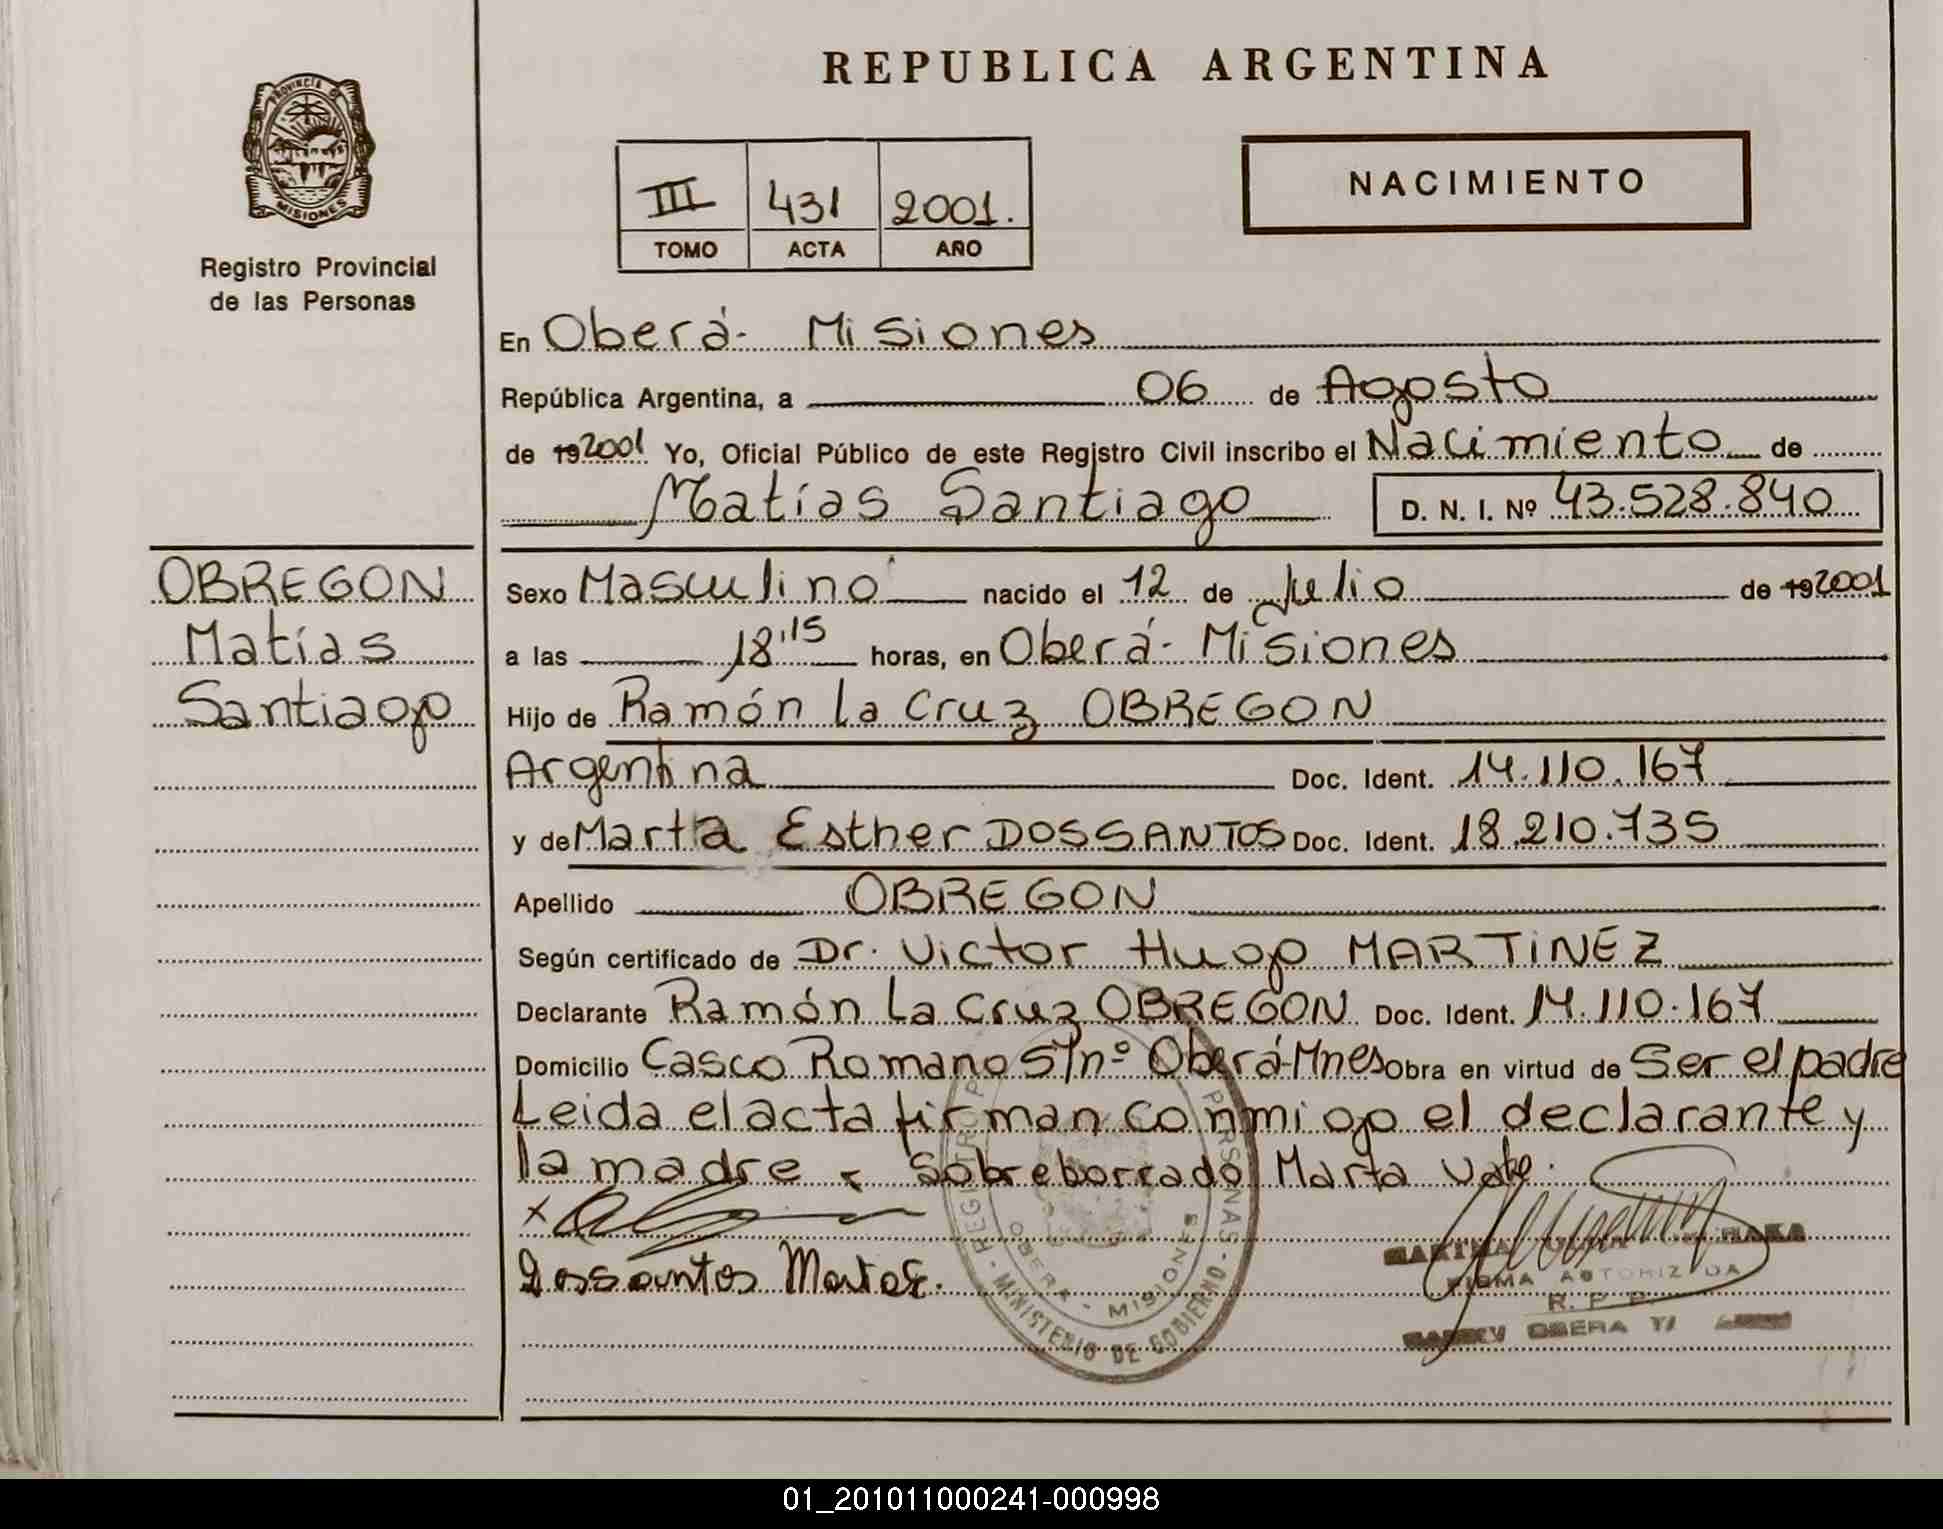 REPUBLICA ARGENTINA
PROVINCIA DE
MISIONES
Registro Provincial
de las Personas
III 431 2001.
TOMO ACTA AÑO
NACIMIENTO
En Oberá- Misiones
República Argentina, a 06 de Agosto
de 19 2001 Yo, Oficial Público de este Registro Civil inscribo el Nacimiento de
Matías Santiago D. N. I. Nº 43.528.840
OBREGON
Matías
Santiago
Sexo Masculino nacido el 12 de Julio de 19 2001
a las 18,15 horas, en Oberá- Misiones
Hijo de Ramón La Cruz OBREGON
Argentina Doc. Ident. 14.110.167
y de Marta Esther DOSSANTOS Doc. Ident. 18.210.735
Apellido OBREGON
Según certificado de Dr. Victor Hugo MARTINEZ
Declarante Ramón La Cruz OBREGON Doc. Ident. 14.110.167
Domicilio Casco Romano S/nº Oberá-Mnes Obra en virtud de Ser el padre
Leida el acta firman conmigo el declarante y
la madre - Sobreborrado Marta Vale.
x
Dossantos Marta E.
REGISTRO P PERSONAS - MINISTERIO DE GOBIERNO -
OBERA - MISIONES
FIRMA AUTORIZADA
R. P. P.
OBERA
01_201011000241-000998